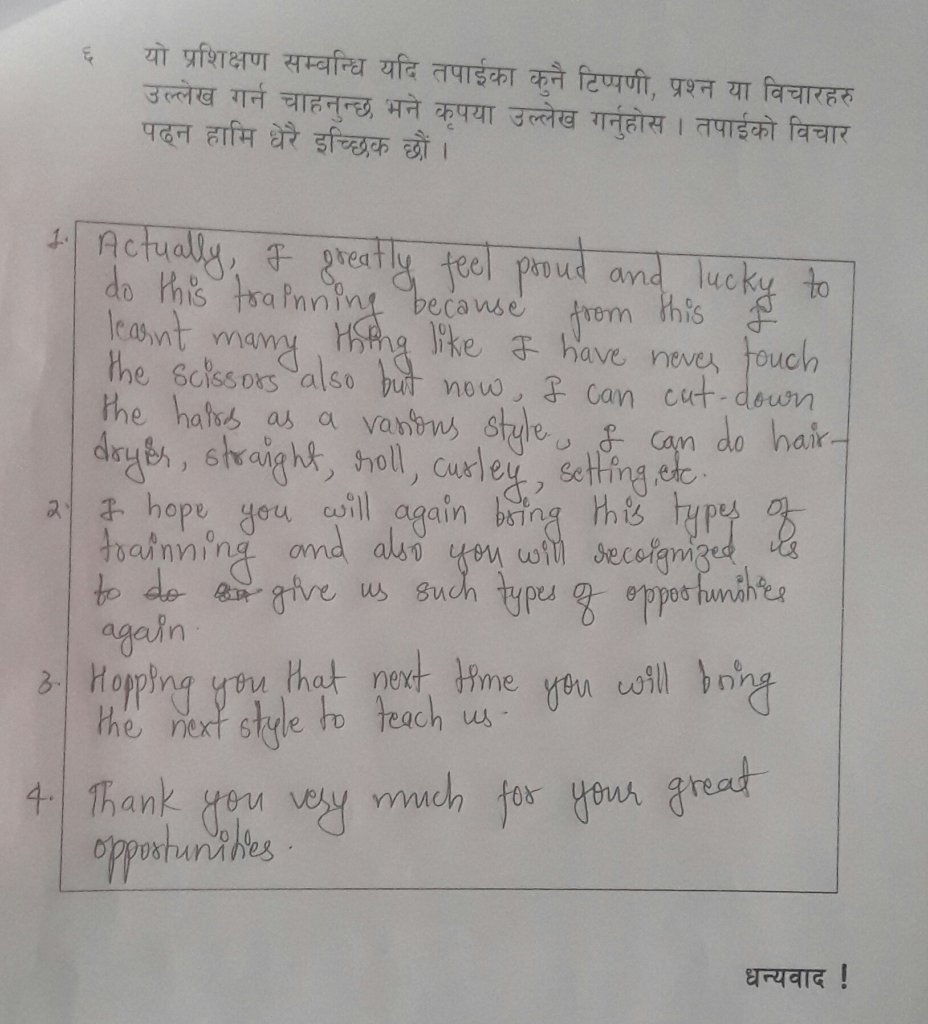 ६ यो प्रशिक्षण सम्बन्धि यदि तपाईका कुनै टिप्पणी, प्रश्न या विचारहरु
उल्लेख गर्न चाहनुन्छ भने कृपया उल्लेख गर्नुहोस । तपाईको विचार
पढ्न हामि धेरै इच्छिक छौं ।
1. Actually, I greatly feel proud and lucky to
do this trainning because from this I
learnt many thing like I have never touch
the scissors also but now, I can cut-down
the hairs as a various style, I can do hair-
dryer, straight, roll, curley, setting, etc.
2. I hope you will again bring this types of
trainning and also you will recoignized us
to do give us such types of opportunities
again.
3. Hopping you that next time you will bring
the next style to teach us.
4. Thank you very much for your great
opportunities.
धन्यवाद !